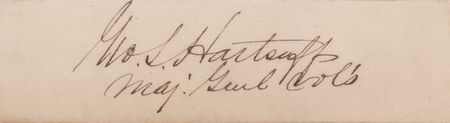 Geo. L. Hartsuff
Maj. Genl Vol's